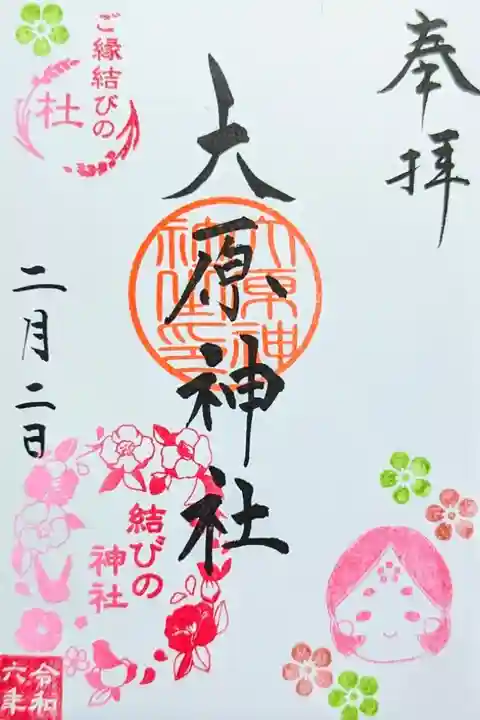 奉拝
大原神社
大原神社之印
ご縁結びの
杜
二月二日
結びの
神社
令和
六年